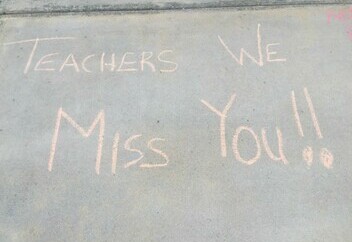 Teachers We
Miss You!!